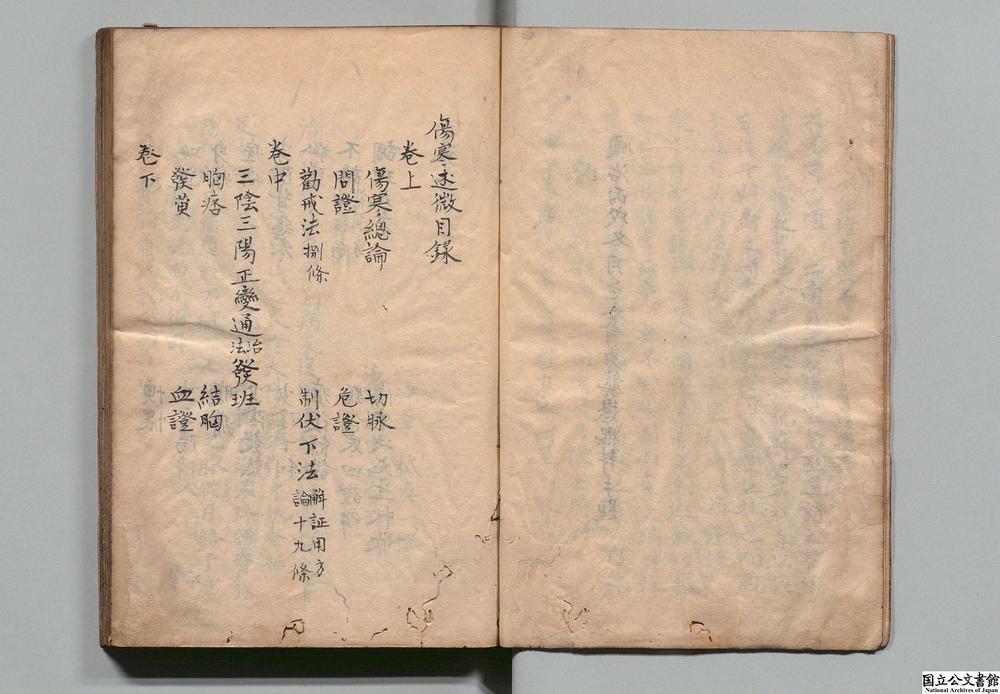 傷寒述微目録
卷上
傷寒總論 切脉
問證 危證
勸戒法捌條 制伏下法解証用方論十九條
卷中
三陰三陽正變通治法發班
胸痞 結胸
發黄 血證
卷下
国立公文書館
National Archives of Japan